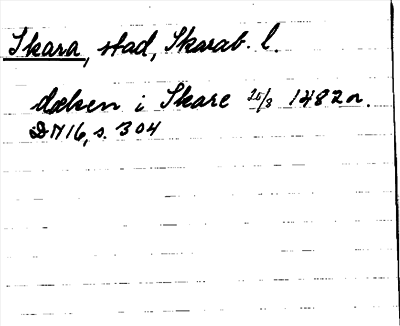 Skara, stad, Skarab. l.
dœken i Skare 25/3 1482 n.
DN 16, s. 304